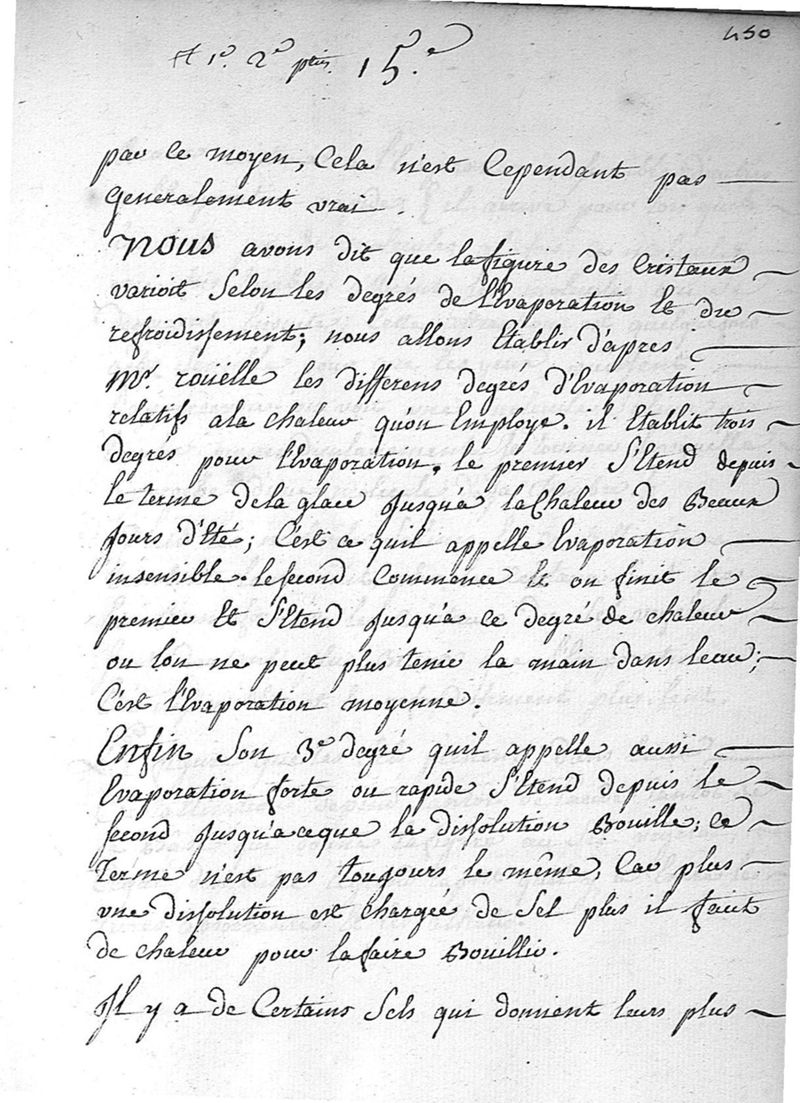 450
A 1e. 2e ptie. 15e.
par ce moyen, Cela n'est Cependant pas
Generalement vrai.
Nous avons dit que la figure des Cristaux
varioit Selon les degrés de l'Evaporation Et du
refroidissement; nous allons Etablir d'apres
Mr. roüelle les differens degrés d'Evaporation
relatifs ala chaleur qu'on Employe. il Etablit trois
degrés pour l'Evaporation, le premier S'Etend depuis
le terme dela glace Jusqu'a la Chaleur des Beaux
Jours d'Eté; C'est ce quil appelle Evaporation
insensible. le second Commence là ou finit le
premier Et S'Etend Jusqu'a ce degré de chaleur
ou lon ne peut plus tenir la main dans l'eau;
C'est l'Evaporation moyenne.
Enfin Son 3e degré quil appelle aussi
Evaporation forte ou rapide S'Etend depuis le
second Jusqu'aceque la dissolution Bouille; ce
Terme n'est pas toujours le même, Car plus
une dissolution est chargée de Sel plus il faut
de chaleur pour la faire Bouillir.
Il y a de Certains Sels qui donnent leurs plus